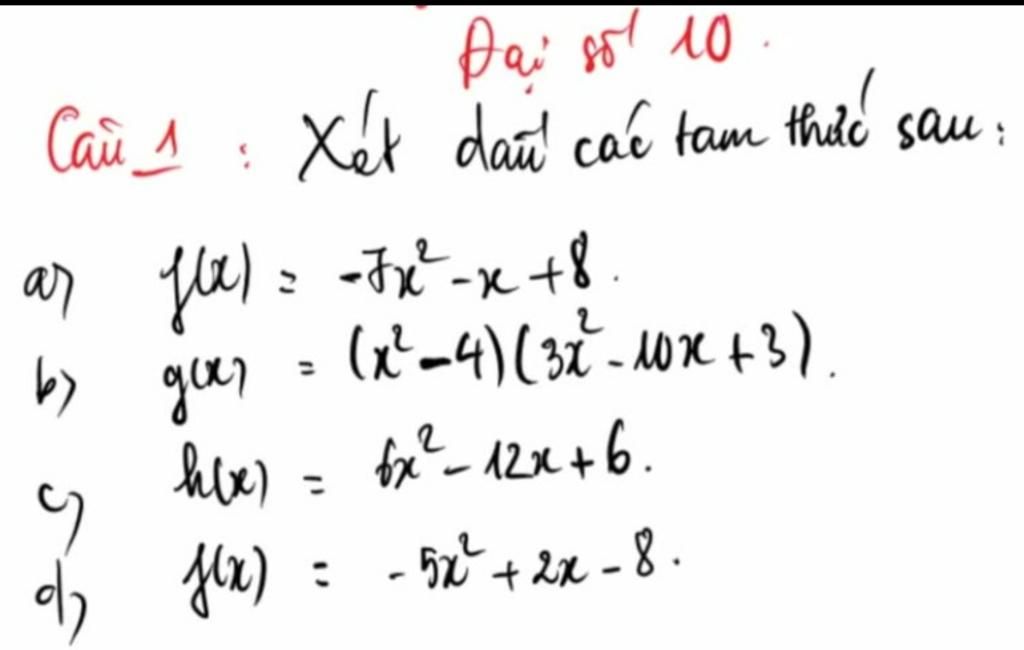 Đại số 10.
Câu 1 : Xét dấu các tam thức sau:
a) f(x) = -7x² - x + 8.
b) g(x) = (x² - 4)(3x² - 10x + 3).
c) h(x) = 6x² - 12x + 6.
d) f(x) = - 5x² + 2x - 8.